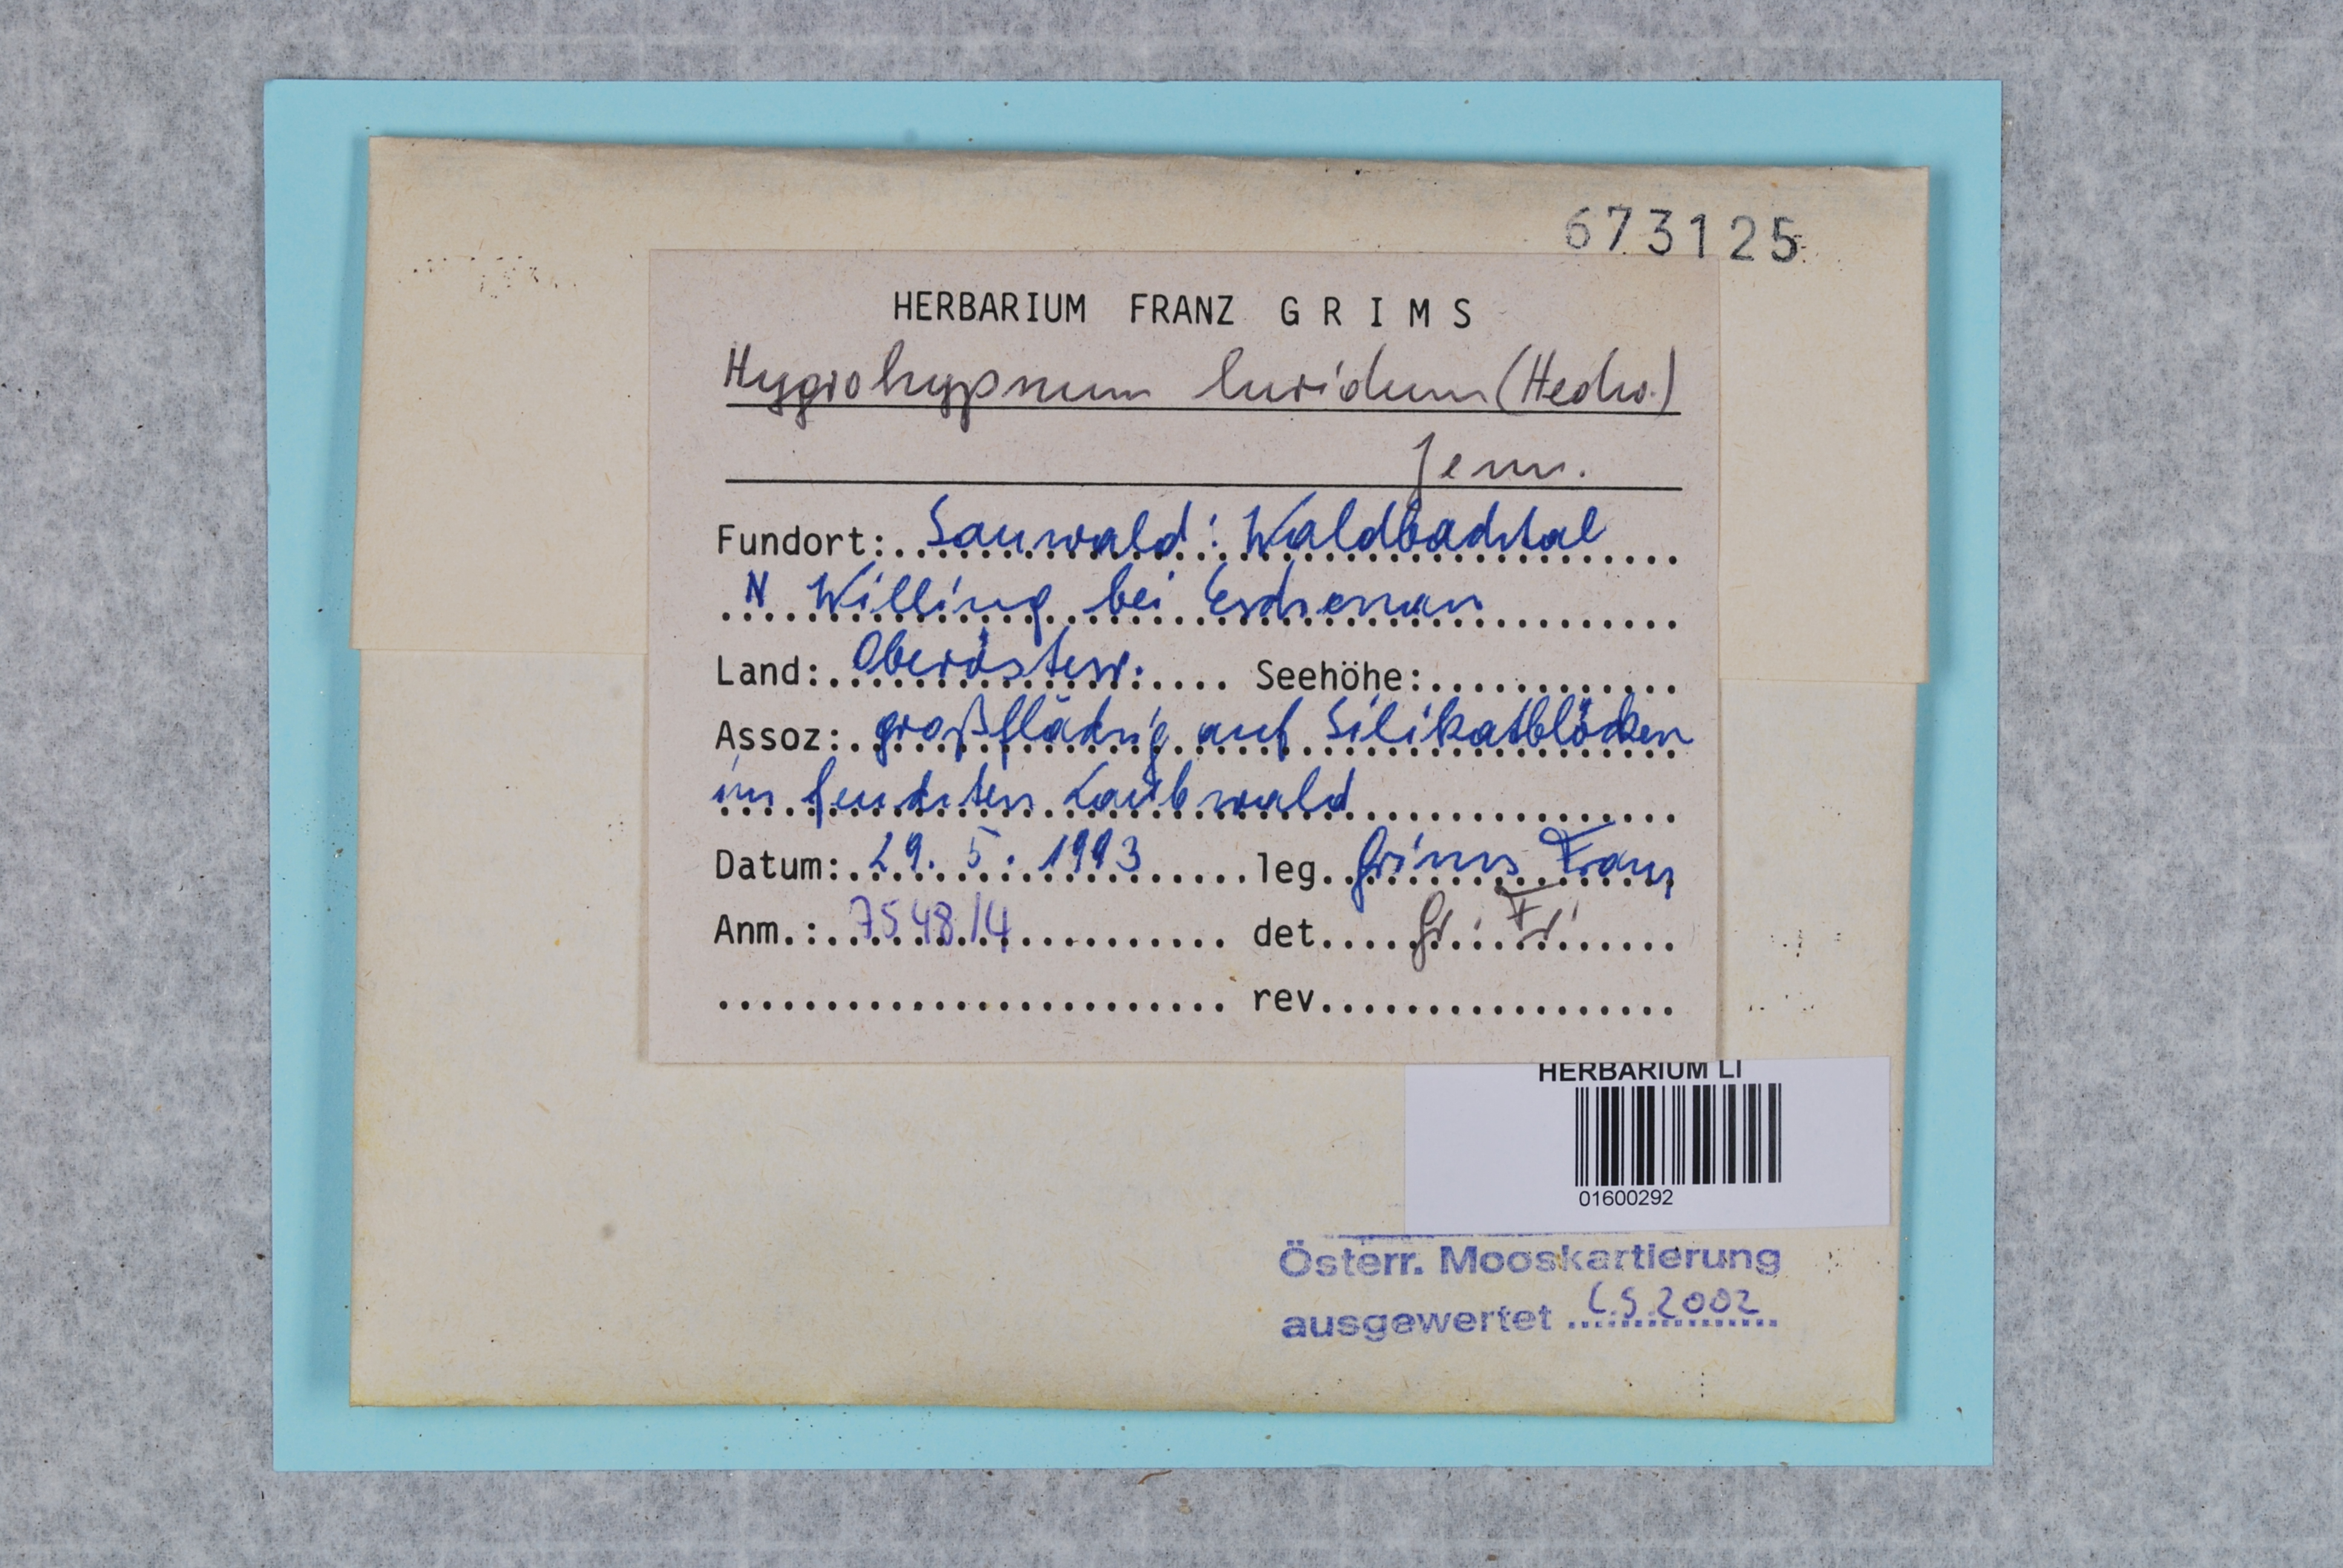 673125
HERBARIUM FRANZ GRIMS
Hygrohypnum luridum (Hedw.)
Jenn.
Fundort: Sauwald: Waldbachtal
N Willing bei Eschenau
Land: Oberösterr. Seehöhe:
Assoz: großflächig auf Silikatblöcken
im feuchten Laubwald
Datum: 29. 5. 1993 leg. Grims Franz
Anm.: 7548/4 det. Gr. Fr.
rev.
HERBARIUM LI
01600292
Österr. Mooskartierung
ausgewertet 2002